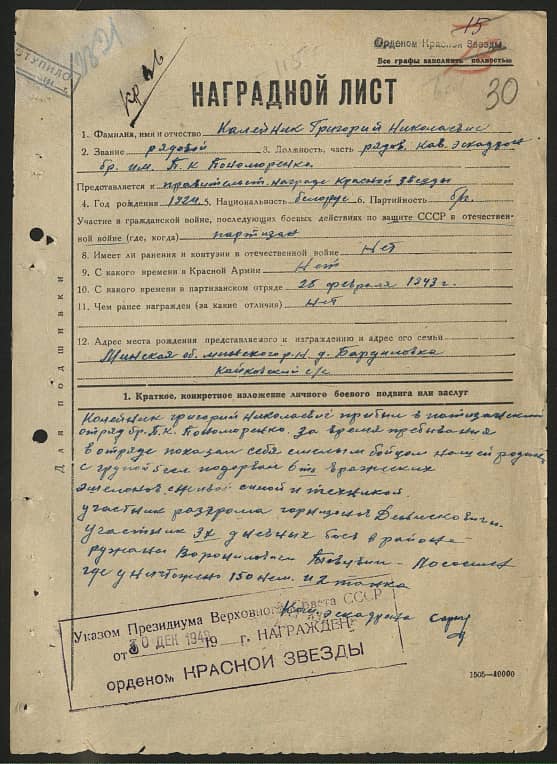 15
Орденом Красной Звезды
Все графы заполнять полностью
НАГРАДНОЙ ЛИСТ
30
1. Фамилия, имя и отчество Калейник Григорий Николаевич
2. Звание рядовой 3. Должность, часть рядов. Кав. эскадрон
бр. им. П.К Пономоренко.
Представляется к правительст. награде Красной звезды
4. Год рождения 1924 5. Национальность белорус 6. Партийность б/п.
Участие в гражданской войне, последующих боевых действиях по защите СССР в отечествен-
ной войне (где, когда) партизан
8. Имеет ли ранения и контузии в отечественной войне Нет
9. С какого времени в Красной Армии Нет
10. С какого времени в партизанском отряде 28 февраля 1943 г.
11. Чем ранее награжден (за какие отличия) Нет
12. Адрес места рождения представляемого к награждению и адрес его семьи
Минская об. минского р.н. д. Бардиловка
Кайковский с/с
Для подшивки
1. Краткое, конкретное изложение личного боевого подвига или заслуг
Калейник григорий николаевич прибыл в партизанский
отряд бр. П.К. Пономоренко. за время пребывания
в отряде показал себя смелым бойцом нашей родины
с групой 5 чел подорвал 6 вражеских
эшелонов с живой силой и техникой.
участник разгрома
Участник 3х дневных боев в районе
ружаны
где уничтожено 150 нем. и 2 танка
Ком. эскадрона
Указом Президиума Верховного Совета СССР
от 30 ДЕК 1948 19 г. НАГРАЖДЕН
орденом КРАСНОЙ ЗВЕЗДЫ
1505—40000